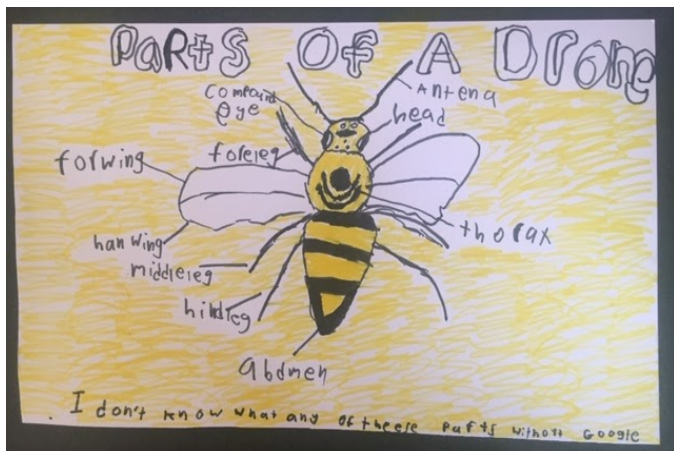 Parts Of A Drone
Antena
Compound
eye
head
foreleg
forwing
thorax
han wing
middleleg
hindleg
abdmen
I don't know what any of theere parts without Google